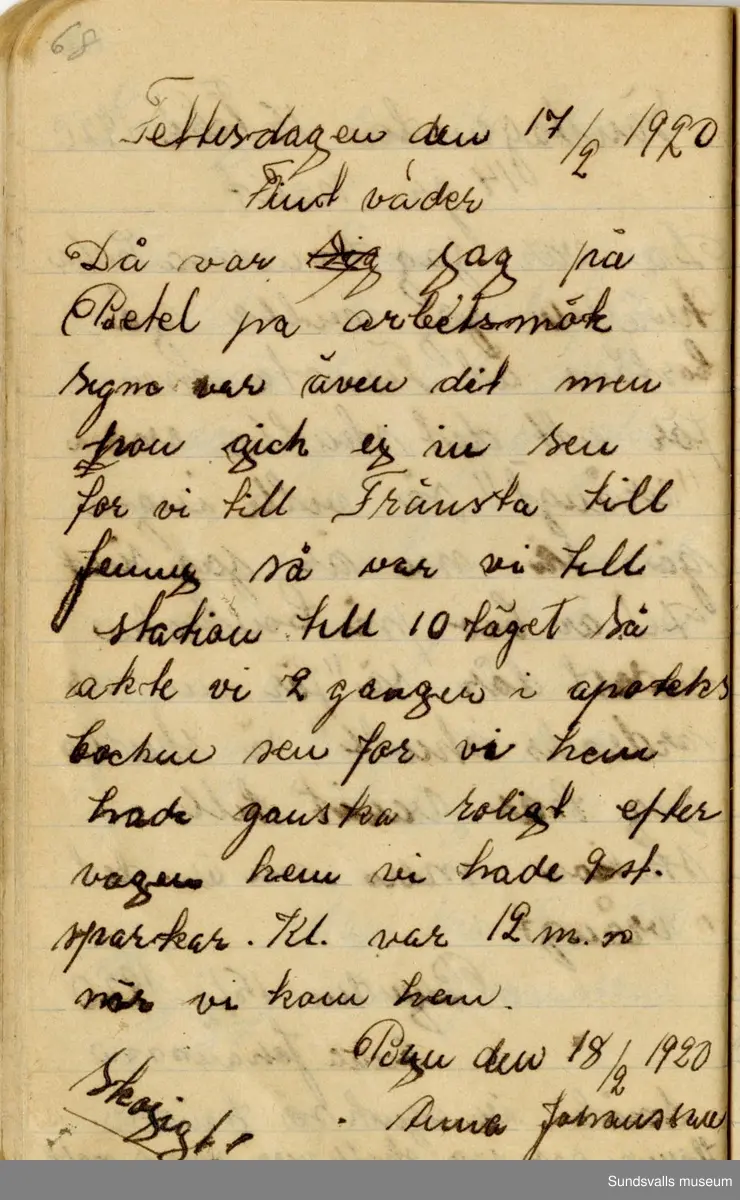 68
Fettisdagen den 17/2 1920
Fint väder
Då var jag på
Betel pa arbetsmök
signe var även dit men
hon gich ej in sen
for vi till Fränsta till
Jenny så var vi till
station till 10 tåget så
akte vi 2 ganger i apoteks
backen sen for vi hem
hade ganska roligt efter
vagen hem vi hade 2 st.
sparkar. Kl. var 12 m.n
när vi kom hem.
Byn den 18/2 1920
Skojigt. Anna Johansson
Sundsvalls museum